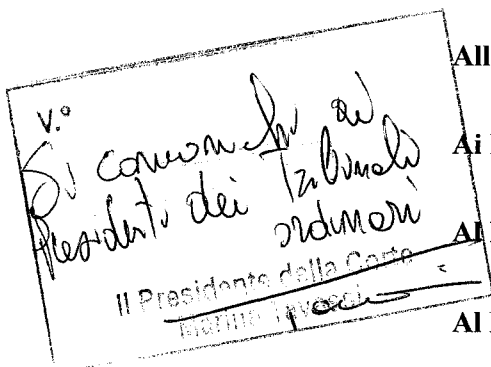 All
V.°
Si comunichi ai
Ai
Presidenti dei Tribunali
ordinari
Al
Il Presidente della Corte
Marina Tavassi
Al